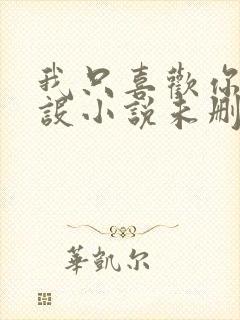 我只喜歡你
設小說未刪
華凱尔